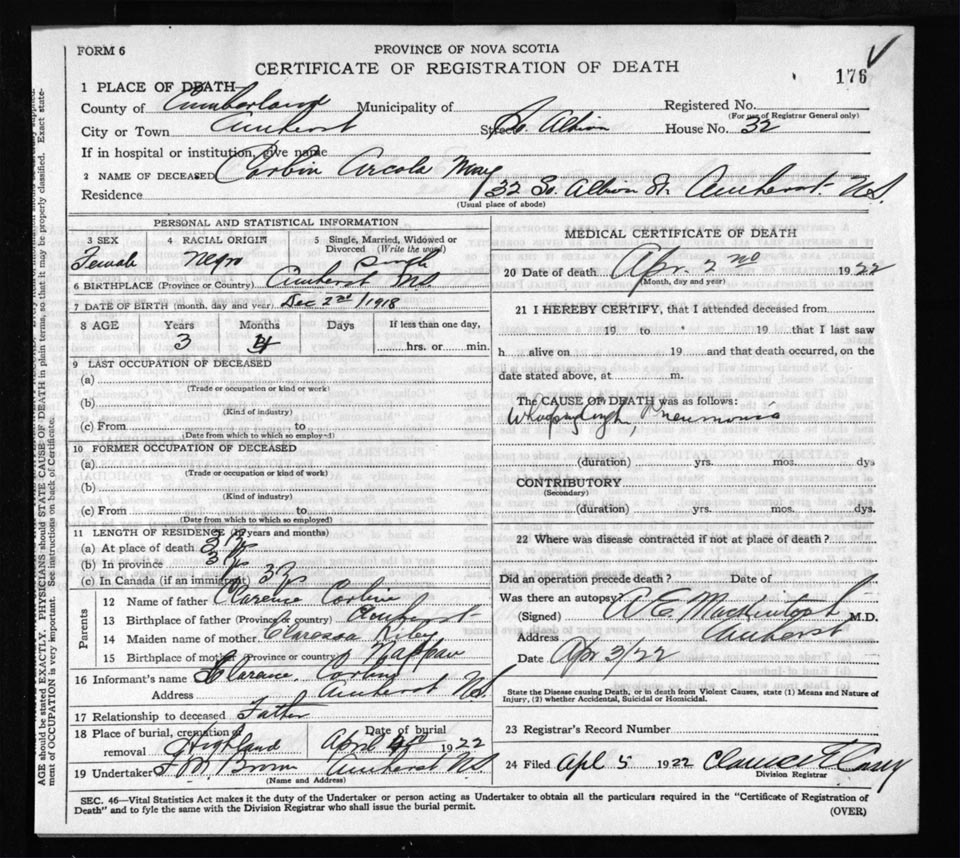 FORM 6
PROVINCE OF NOVA SCOTIA
CERTIFICATE OF REGISTRATION OF DEATH
176
1 PLACE OF DEATH
County of Cumberland Municipality of Registered No.
(For use of Registrar General only)
City or Town Amherst Street So. Albion House No. 32
If in hospital or institution, give name
2 NAME OF DECEASED Corbin Arcola May
Residence 32 So. Albion St. Amherst N.S.
(Usual place of abode)
PERSONAL AND STATISTICAL INFORMATION
3 SEX 4 RACIAL ORIGIN 5 Single, Married, Widowed or Divorced (Write the word)
Female Negro Single
6 BIRTHPLACE (Province or Country) Amherst NS
7 DATE OF BIRTH (month, day and year) Dec 2nd 1918
8 AGE Years Months Days If less than one day,
3 4 hrs. or min.
9 LAST OCCUPATION OF DECEASED
(a)
(Trade or occupation or kind or work)
(b)
(Kind of industry)
(c) From to
(Date from which to which so employed)
10 FORMER OCCUPATION OF DECEASED
(a)
(Trade or occupation or kind of work)
(b)
(Kind of industry)
(c) From to
(Date from which to which so employed)
11 LENGTH OF RESIDENCE (In years and months)
(a) At place of death 3 yrs
(b) In province 3 yrs
(c) In Canada (if an immigrant) 3 yrs
Parents
12 Name of father Clarence Corbin
13 Birthplace of father (Province or country) Amherst
14 Maiden name of mother Claressa Riley
15 Birthplace of mother (Province or country) Nappan
16 Informant's name Clarence Corbin
Address Amherst N.S.
17 Relationship to deceased Father
18 Place of burial, cremation or removal Highland Date of burial April 1922
19 Undertaker Brown Amherst N.S.
(Name and Address)
MEDICAL CERTIFICATE OF DEATH
20 Date of death Apr. 2nd 1922
(Month, day and year)
21 I HEREBY CERTIFY, that I attended deceased from
19 to 19 that I last saw
h alive on 19 and that death occurred, on the
date stated above, at m.
The CAUSE OF DEATH was as follows:
Whooping Cough, Pneumonia
(duration) yrs. mos. dys
CONTRIBUTORY
(Secondary)
(duration) yrs. mos. dys.
22 Where was disease contracted if not at place of death?
Did an operation precede death? Date of
Was there an autopsy?
(Signed) A E Mackintosh M.D.
Address Amherst
Date Apr 3/22
State the Disease causing Death, or in death from Violent Causes, state (1) Means and Nature of
Injury, (2) whether Accidental, Suicidal or Homicidal.
23 Registrar's Record Number
24 Filed Apl 5 1922
Division Registrar
SEC. 46—Vital Statistics Act makes it the duty of the Undertaker or person acting as Undertaker to obtain all the particulars required in the "Certificate of Registration of
Death" and to fyle the same with the Division Registrar who shall issue the burial permit.
(OVER)
AGE should be stated EXACTLY. PHYSICIANS should STATE CAUSE OF DEATH in plain terms, so that it may be properly classified. Exact state-
ment of OCCUPATION is very important. See instructions on back of Certificate.